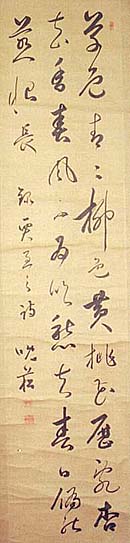 草色青々柳色黄桃花歴乱李
花香春風不為吹愁去春日偏能
惹恨長 録賈至之詩